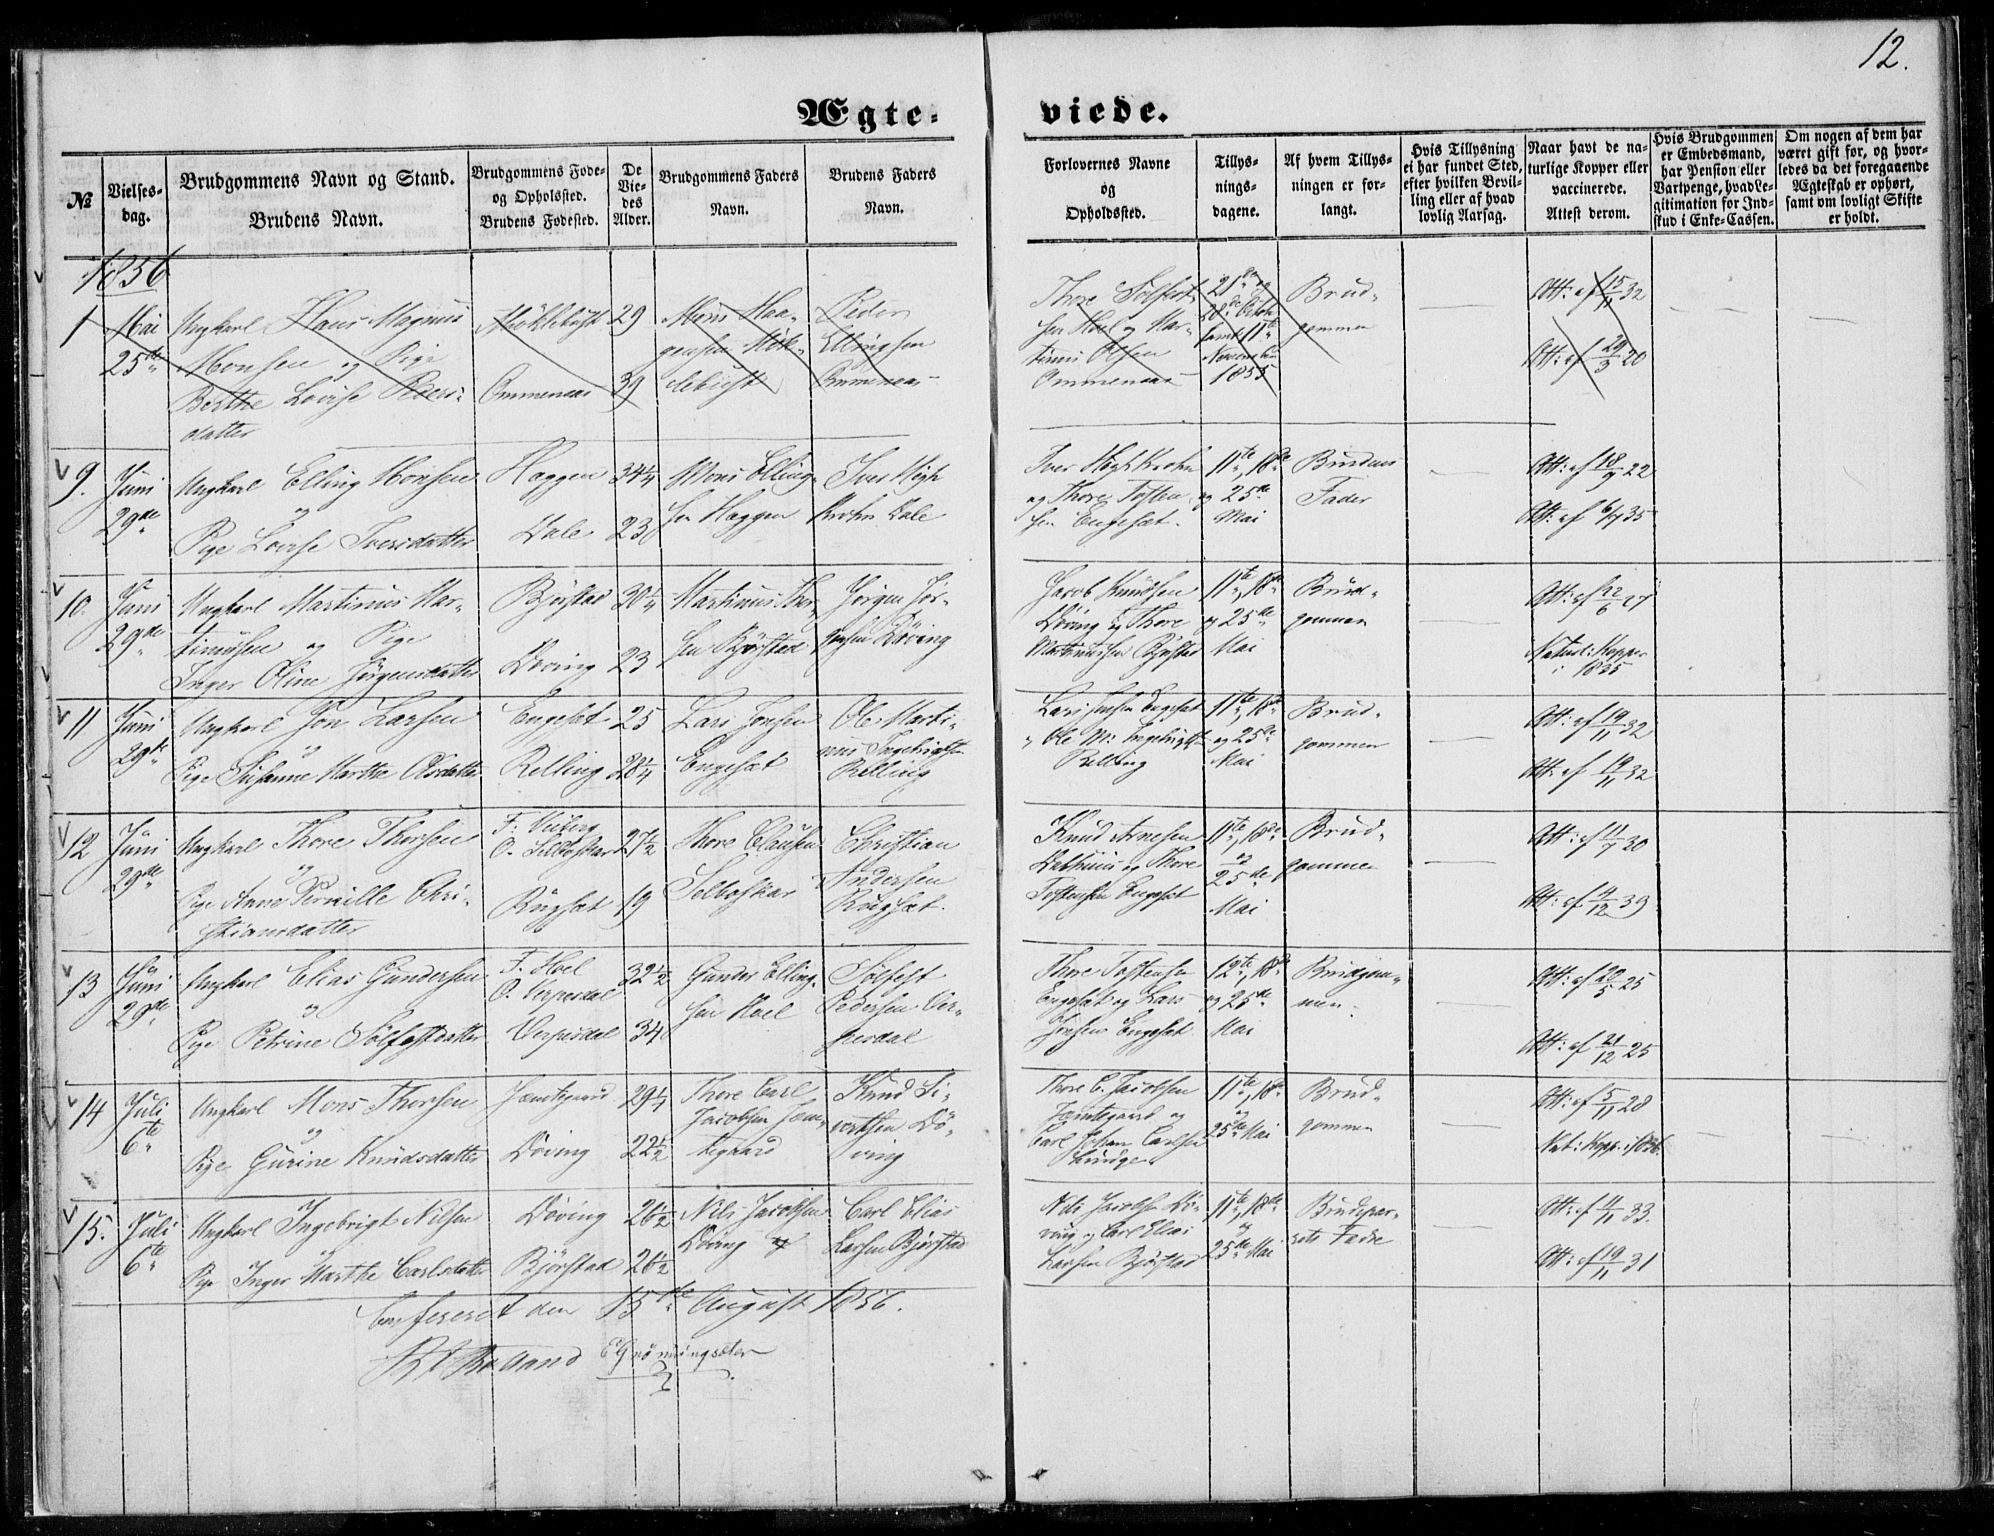 12.
Ægte-
viede.
№
Vielses-
dag.
Brudgommens Navn og Stand.
Brudens Navn.
Brudgommens Føde-
og Opholdssted.
Brudens Fødested.
De
Vie-
des
Alder.
Brudgommens Faders
Navn.
Brudens Faders
Navn.
Forlovernes Navne
og
Opholdssted.
Tillys-
nings-
dagene.
Af hvem Tillys-
ningen er for-
langt.
Hvis Tillysning
ei har fundet Sted,
efter hvilken Bevil-
ling eller af hvad
lovlig Aarsag.
Naar havt de na-
turlige Kopper eller
vaccinerede.
Attest derom.
Hvis Brudgommen
er Embedsmand,
har Pension eller
Vartpenge, hvad Le-
gitimation for Ind-
skud i Enke-Cassen.
Om nogen af dem har
været gift før, og hvor-
ledes da det foregaaende
Ægteskab er ophørt,
samt om lovligt Skifte
er holdt.
1856
1 Mai 25de
Ungkarl Hans Magnus
Monsen og Pige
Berthe Lovise Peders-
datter
Møklebust 29
Ommenaas 39
Mons Haa-
gensen Møk-
lebust
Peder
Ellingsen
Ommenaas
Thore Solfest-
sen Hoel og Mar-
tinus Olsen
Ommenaas
21de og
28de Octob
samt 11te
November
1855
Brud-
gommen
Att: af 15/11 32
Att: af 29/3 20
9. Juni 29de
Ungkarl Elling Monsen
og
Pige Lovise Iversdatter
Haggen 34 1/4
Dale 23
Mons Elling-
sen Haggen
Iver Høgh
Krohn Dale
Iver Høgh Krohn
og Thore Tosten
sen Engeset.
11te, 18de
og 25de
Mai
Brudens
Fader
Att: af 18/9 22
Att: af 6/7 35
10. Juni 29de
Ungkarl Martinus Mar-
tinusen og Pige
Inger Oline Jørgensdatter
Bjørstad 30 1/4
Døving 23
Martinus Thor-
sen Bjørstad
Jørgen Jør-
gensen Døving
Jacob Knudsen
Døving og Thore
Martinussen Bjørstad
11te, 18de
og 25de
Mai
Brud-
gommen
Att: af 22/6 27
Naturl: Kopper
i 1835
11 Juni 29de
Ungkarl Jon Larsen
og
Pige Susanne Marthe Olsdatter
Engeset 25
Relling 28 1/4
Lars Jonsen
Engeset
Ole Marti-
nus Ingebrigtsen
Relling
Lars Jonsen Engeset
og Ole M: Ingebrigtsen
Relling
11te, 18de
og 25de
Mai
Brud-
gommen
Att: af 19/11 32
Att: af 19/11 32
12 Juni 29de
Ungkarl Thore Thorsen
og
Pige Anne Pernille Chri-
stiansdatter
F: Viiberg
O. Selboskar 27 1/2
Rugset 19
Thore Clausen
Selboskar
Christian
Andersen
Rugset.
Knud Arnesen
og Thore
Tostensen Engeset
11te, 18de
og
25de
Mai
Brud-
gommen
Att: af 11/7 30
Att: af 4/12 39
13 Juni 29de
Ungkarl Elias Gundersen
og
Pige Petrine Solfestdatter
F. Hoel
O. Verpesdal 32 1/2
Verpesdal 34
Gunder Elling-
sen Hoel
Solfest
Pedersen Ver-
pesdal
Thore Tostensen
Engeset og Lars
Jonsen Engeset
12te, 18de
og 25de
Mai
Brudgom-
men.
Att: af 22/5 25
Att: af 21/12 25
14 Juli 6te
Ungkarl Mons Thorsen
og
Pige Gurine Knudsdatter
Jemtegaard 29 1/4
Døving 22 1/2
Thore Carl
Jacobsen Jem-
tegaard
Knud Si-
vertsen Dø-
ving
Thore C. Jacobsen
Jemtegaard og
Carl Johan Carlsen
11te, 18de
og
25de Mai
Brud-
gommen
Att: af 5/11 28
Nat: Kopp: i 1836.
15. Juli 6te
Ungkarl Ingebrigt Nilsen
og
Pige Inger Marthe Carlsdatter
Døving 26 1/2
Bjørstad 26 1/2
Nils Jacobsen
Døving
Carl Elias
Larsen Bjørstad
Nils Jacobsen Dø-
ving og Carl Elias
Larsen Bjørstad
11te, 18de
og
25de Mai
Brudepar-
rets Fædre
Att: af 4/11 33.
Att: af 19/11 31
Confereret den 15de August 1856.
E Grønningsæter